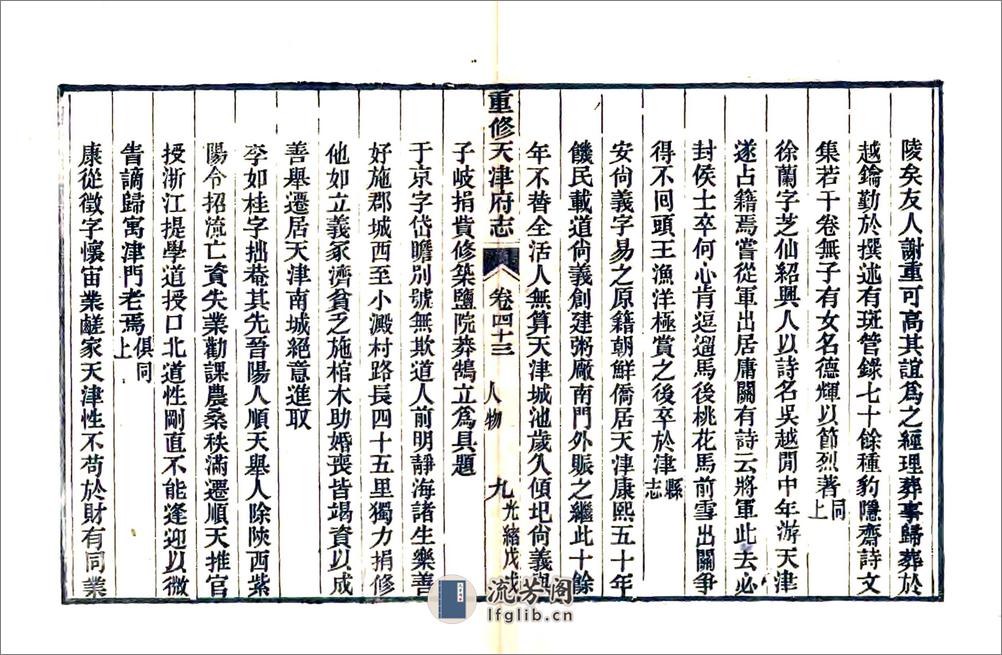 陵矣友人謝重可高其誼爲之經理葬事歸葬於
越錀勤於撰述有斑管錄七十餘種豹隱齋詩文
集若干卷無子有女名德輝以節烈著同上
徐蘭字芝仙紹興人以詩名吳越閒中年游天津
遂占籍焉嘗從軍出居庸關有詩云將軍此去必
封侯士卒何心肯逗遛馬後桃花馬前雪出關爭
得不囘頭王漁洋極賞之後卒於津縣志
安尙義字易之原籍朝鮮僑居天津康熙五十年
饑民載道尙義創建粥廠南門外賑之繼此十餘
年不替全活人無算天津城池歲久傾圯尙義與
重修天津府志
卷四十三
人物
九
光緒戊戌
子岐捐貲修築鹽院莽鵠立爲具題
于京字岱瞻別號無欺道人前明靜海諸生樂善
好施郡城西至小澱村路長四十五里獨力捐修
他如立義冢濟貧乏施棺木助婚喪皆竭資以成
善舉遷居天津南城絕意進取
李如桂字拙菴其先晉陽人順天舉人除陝西紫
陽令招流亡資失業勸課農桑秩滿遷順天推官
授浙江提學道授口北道性剛直不能逢迎以微
眚謫歸寓津門老焉俱同上
康從徵字懷宙業鹺家天津性不苟於財有同業
流芳阁
lfglib.cn